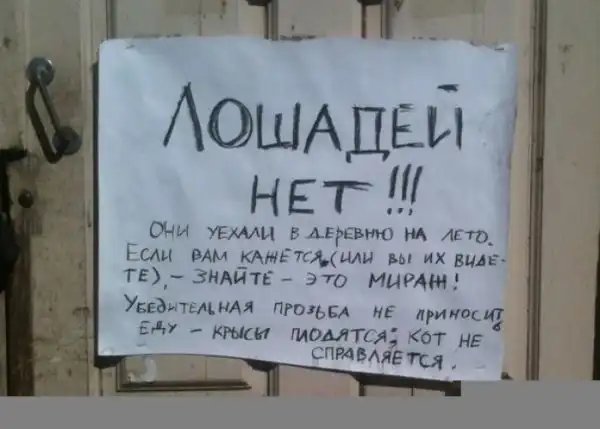 ЛОШАДЕЙ
НЕТ !!!
ОНИ УЕХАЛИ В ДЕРЕВНЮ НА ЛЕТО.
ЕСЛИ ВАМ КАЖЕТСЯ, (ИЛИ ВЫ ИХ ВИДЕ-
ТЕ), - ЗНАЙТЕ - ЭТО МИРАЖ!
УБЕДИТЕЛЬНАЯ ПРОЗЬБА НЕ ПРИНОСИТЬ
ЕДУ - КРЫСЫ ПЛОДЯТСЯ; КОТ НЕ
СПРАВЛЯЕТСЯ.